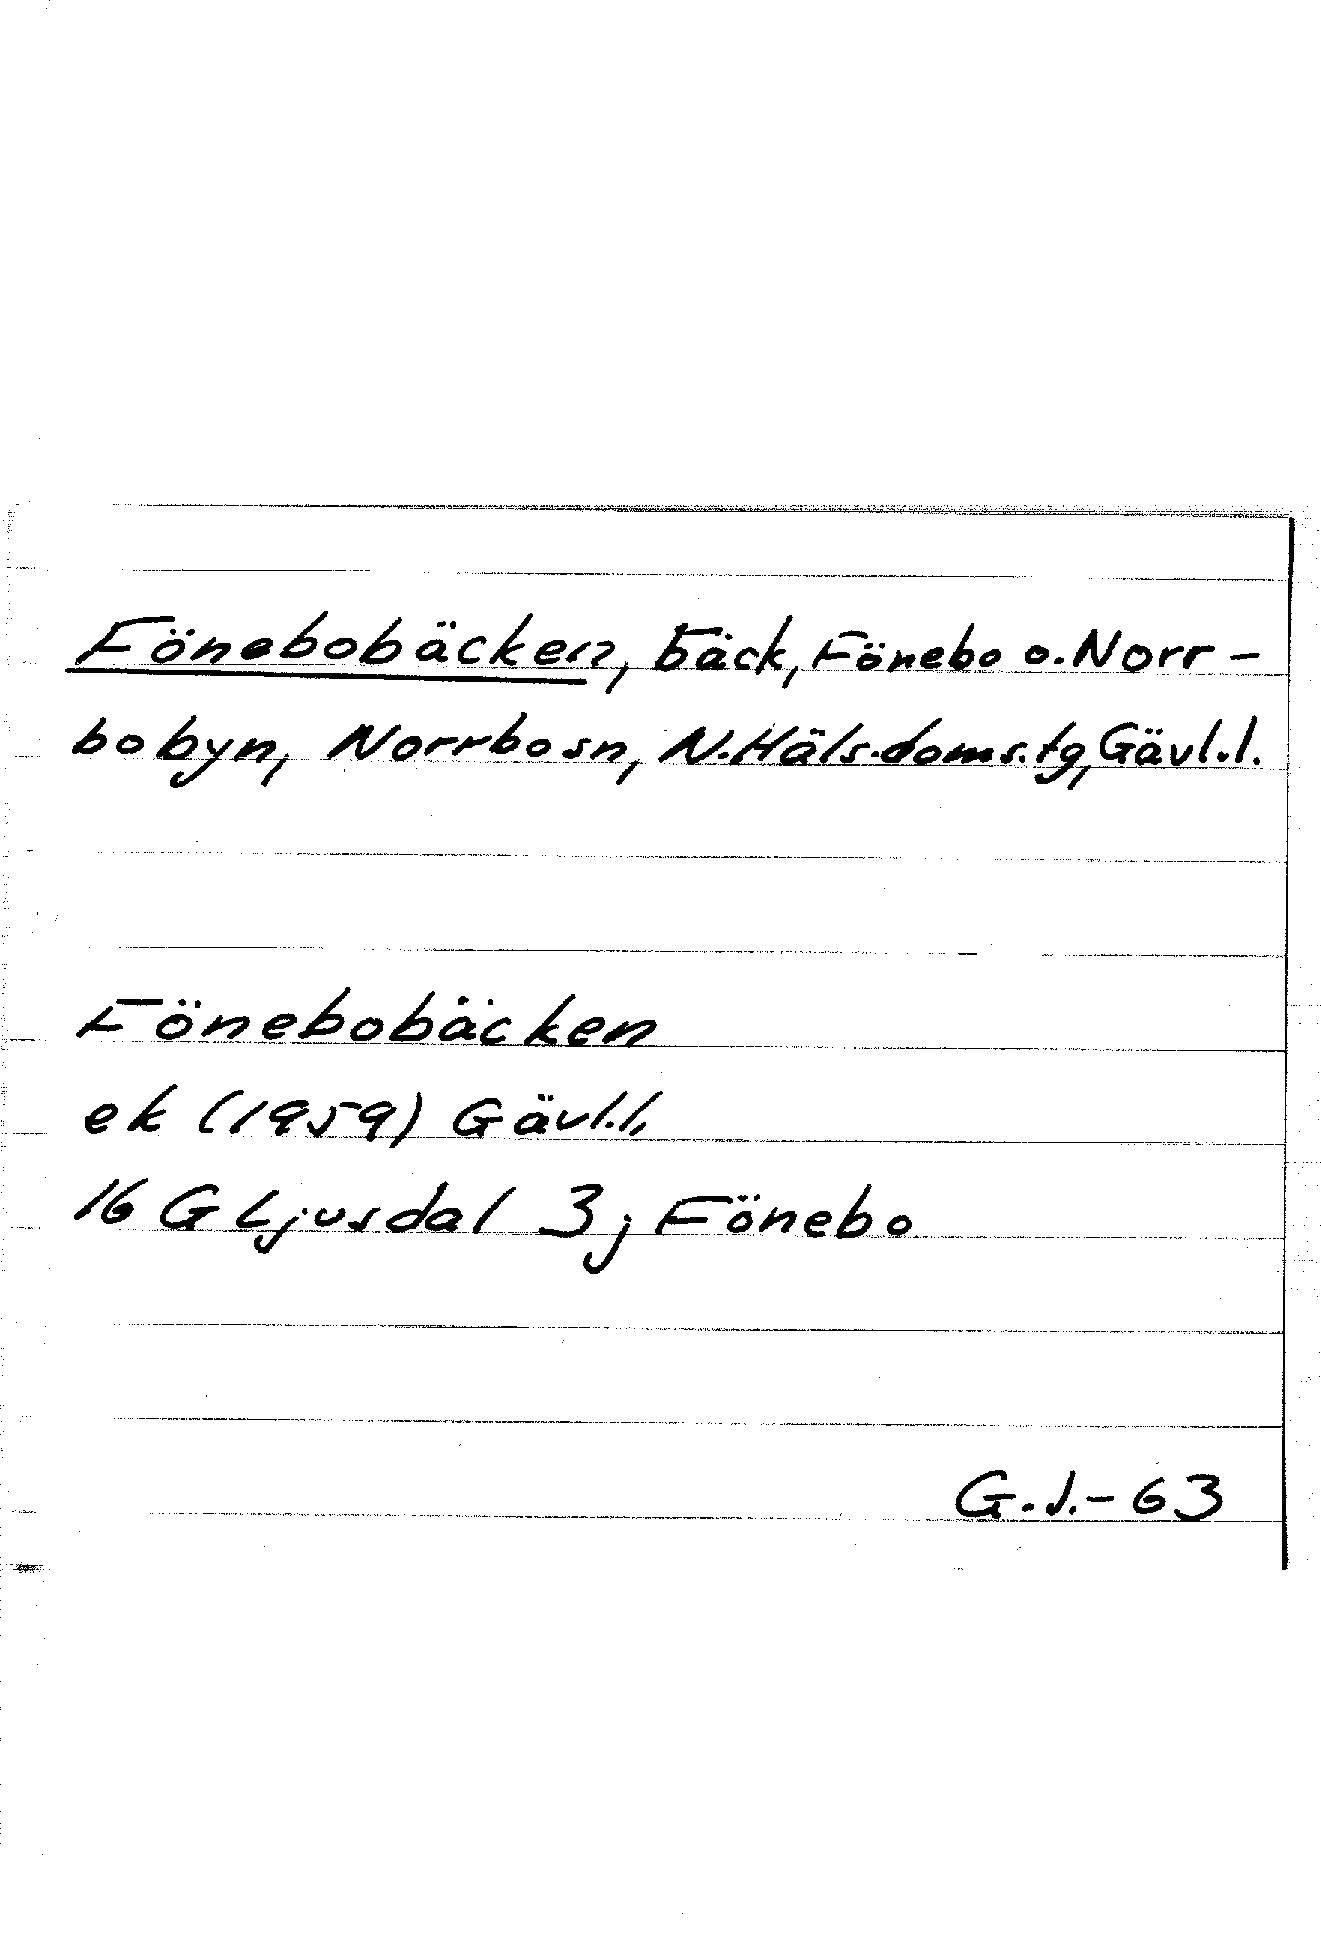 Fönebobäcken, bäck, Fönebo o. Norr-
bobyn, Norrbo sn, N. Häls. doms. tg, Gävl. l.
Fönebobäcken
ek (1959) Gävl. l,
16 G Ljusdal 3 j Fönebo
G. J. - 63